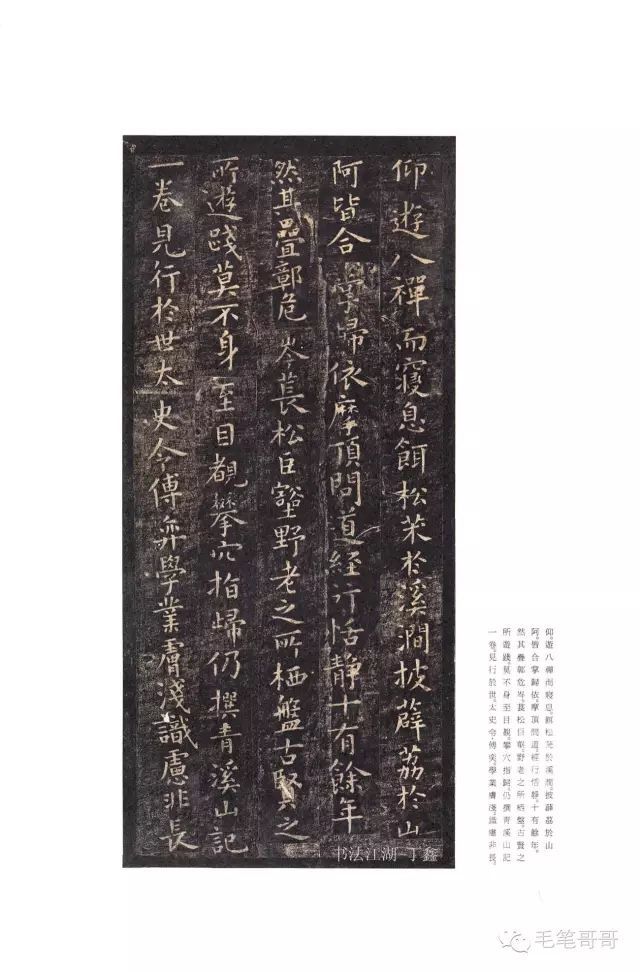 仰遊八禪而寢息餌松朮於溪澗披薜荔於山
阿皆合掌歸依摩頂問道經行恬靜十有餘年
然其疊鄣危岑萇松巨壑野老之所栖盤古賢之
所遊踐莫不身至目覩攀穴指歸仍撰青溪山記
一卷見行於世太史令傅弈學業膚淺識慮非長
仰。遊八禪而寢息。餌松朮於溪澗。披薜荔於山
阿。皆合掌歸依。摩頂問道。經行恬靜。十有餘年。
然其疊鄣危岑。萇松巨壑。野老之所栖盤。古賢之
所遊踐。莫不身至目覩。攀穴指歸。仍撰青溪山記
一卷。見行於世。太史令傅奕。學業膚淺。識慮非長。
书法江湖-丁鑫
毛笔哥哥